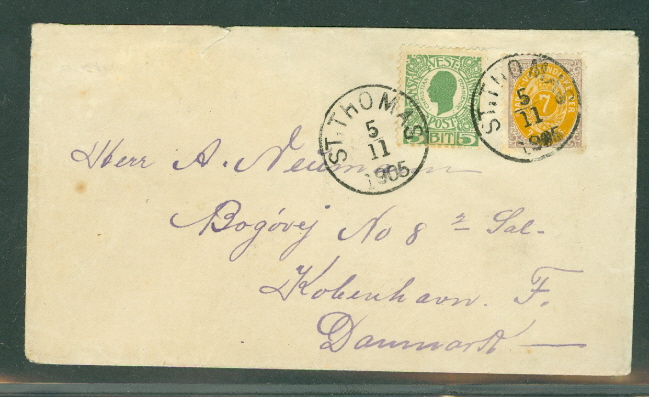 VESTI
POST
5 BIT 5
ST. THOMAS
5
11
1905
ST. THOMAS
5
11
1905
7
Herr A. Neumann
Bogövej No 8 2 Sal-
Kobenhavn. F.
Danmark